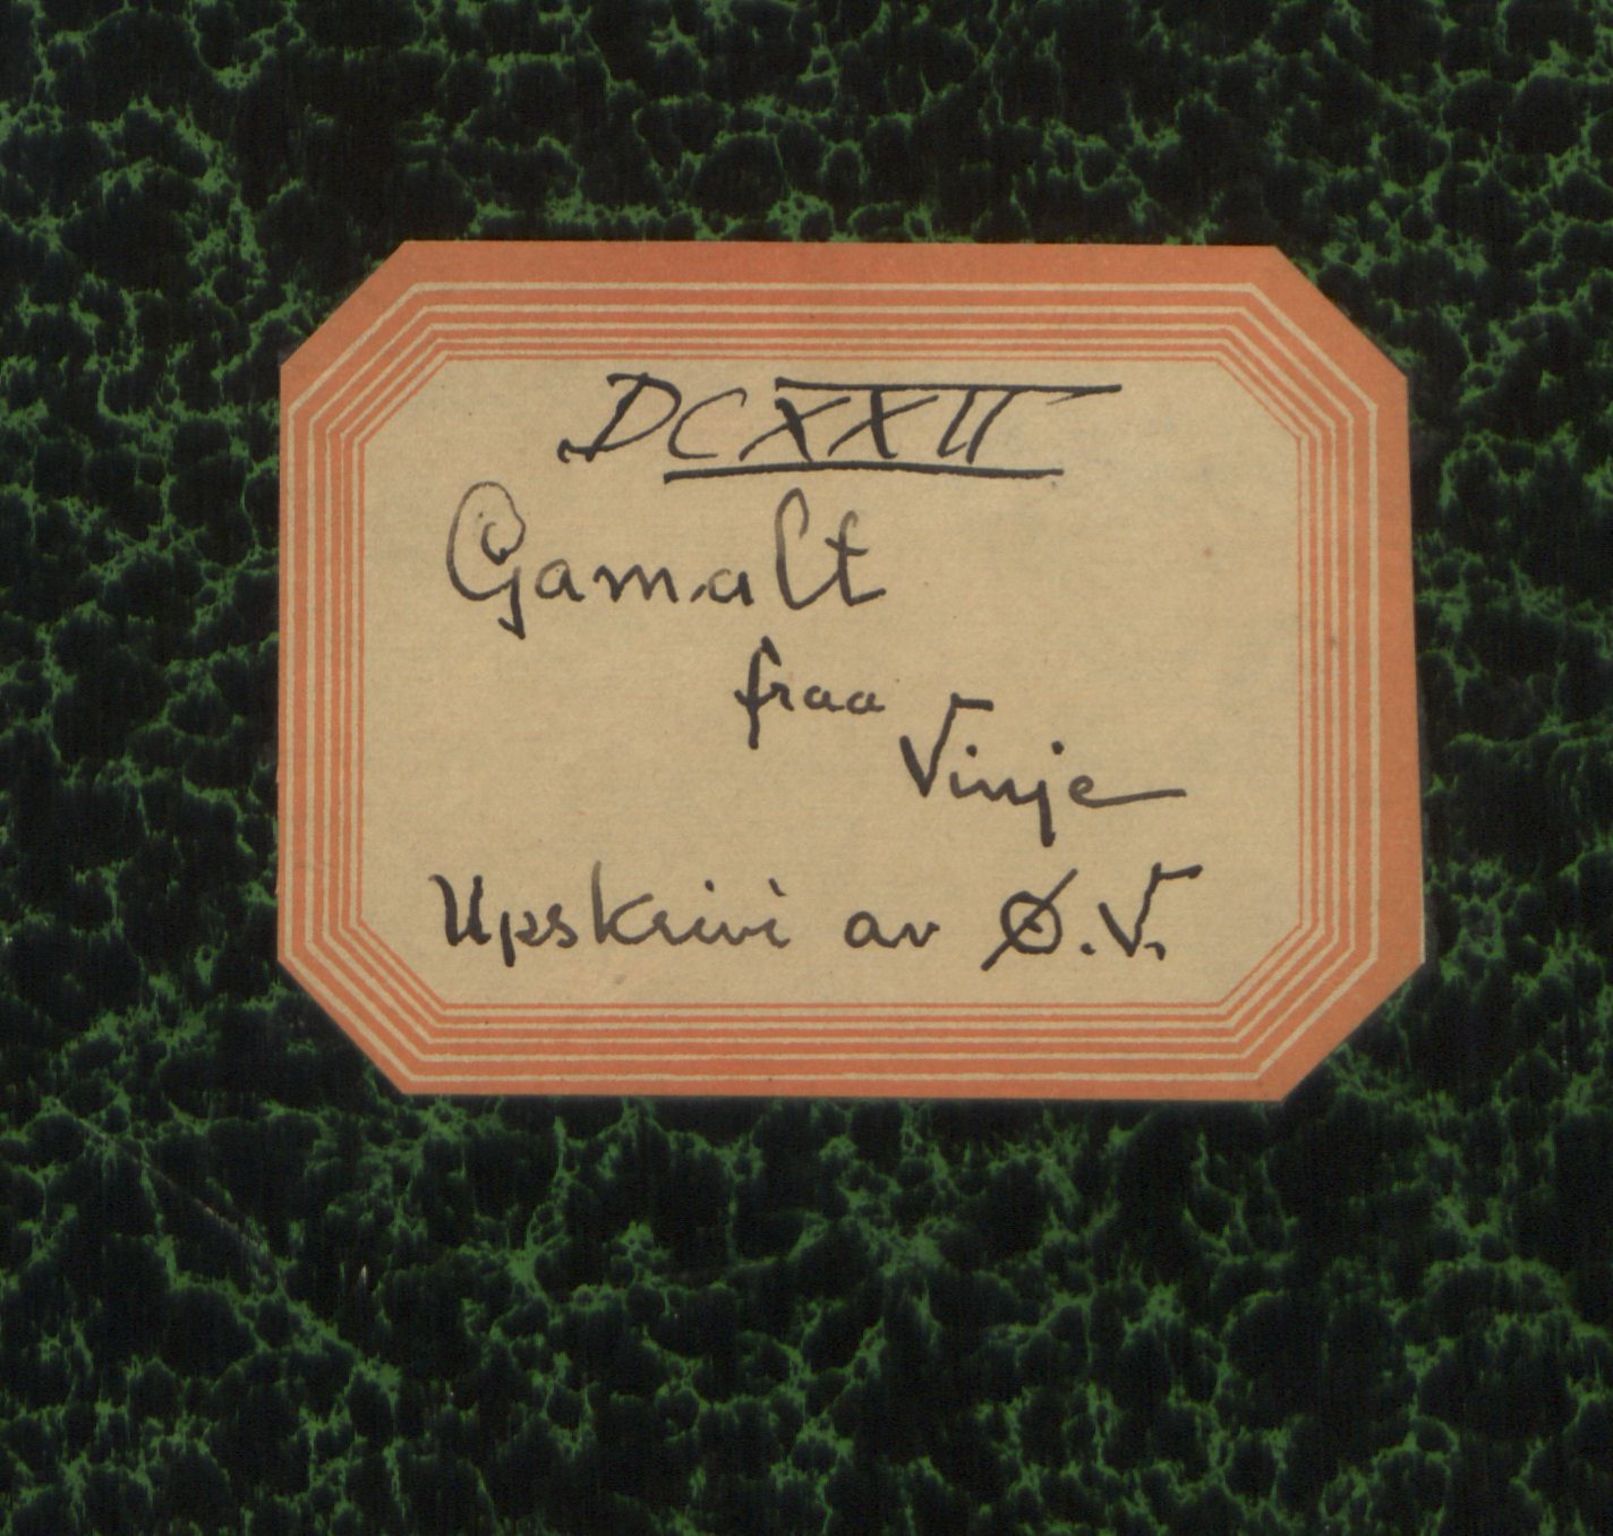 DCXXII
Gamalt
fraa
Vinje
Upskrivi av Ø.V.